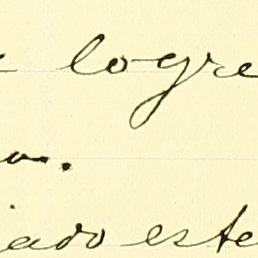 logre
iado este